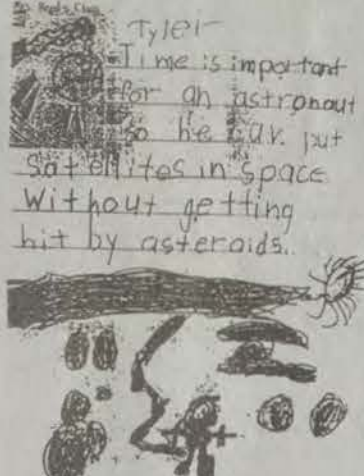 Mrs. Reed's Class
Tyler
Time is important
for an astronaut
so he can put
satellites in space
Without getting
hit by asteroids.